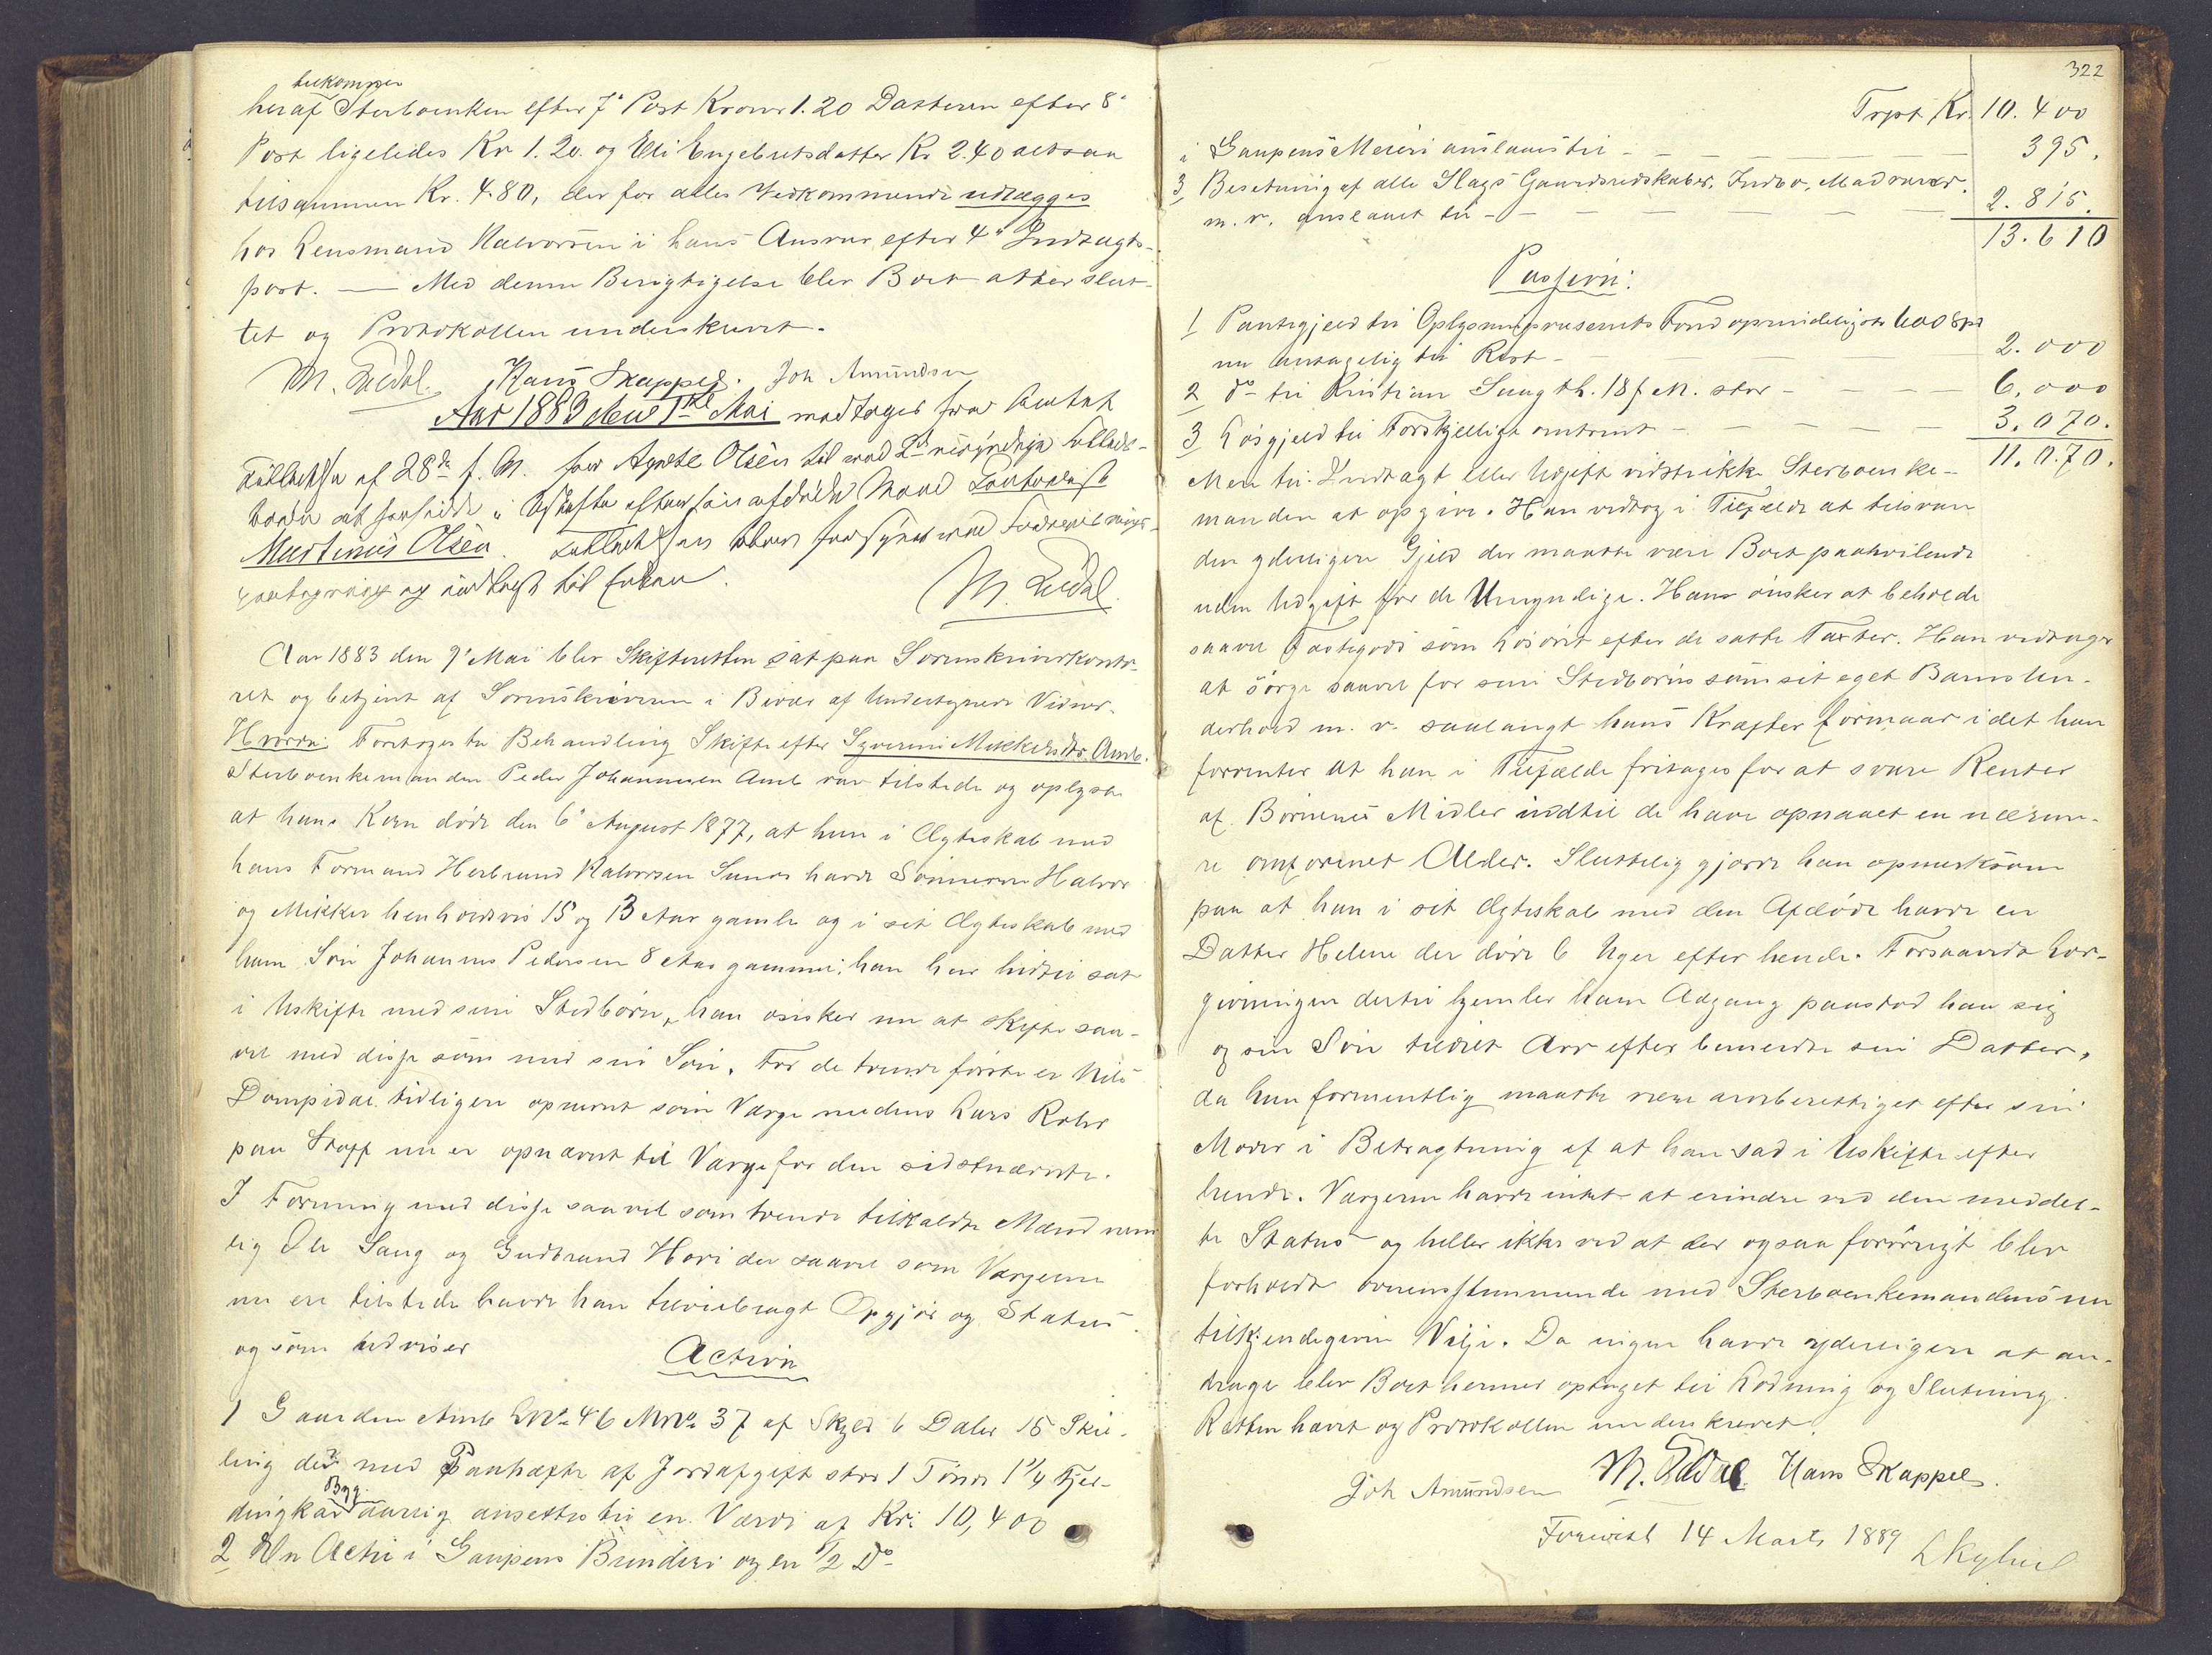 tilkommer
heraf Sterboenken efter 7de Post Kroner 1.20 Datteren efter 8de
Post ligeledes Kr 1.20. og Eli Engebretsdatter Kr 2.40 altsaa
tilsammen Kr. 4.80, der for alles Vedkommende udlægges
hos Lensmand Halvorsen i hans Ansvar efter 4de Indtægts-
post. — Med denne Berigtigelse blev Boet atter slut-
tet og Protokollen underskrevet.
M. Hans Skappel. Joh Amundsen
Aar 1883 den 1ste Mai modtages fra Amtet
af 28de f. M. for Agnete Olsen til med 2de umyndige Fælleds-
børn at hensidde i Uskifte efter sin afdøde Mand
Martinus Olsen.
og indlagt til Enken.
M.
Aar 1883 den 9de Mai blev Skifteretten sat paa Sorenskriverkonto-
ret og betjent af Sorenskriveren i Bivær af undertegnede Vidner.
Hvorda: Foretoges til Behandling Skifte efter Syverine Mikkelsdtr. Amb.
Sterboenkemanden Peder Johannesen Amb var tilstede og oplyste
at hans Kone døde den 6te August 1877, at hun i Ægteskab med
hans Formand Herbrand Halvorsen havde Sønnerne Halvor
og Mikkel henholdsvis 15 og 13 Aar gamle og i sit Ægteskab med
ham Søn Johannes Pedersen 8 Aar gammel; han har hidtil sat
i Uskifte med sine Stedbørn, han ønsker nu at skifte saa-
vel med disse som med sin Søn. For de tvende første er Nils
Dompidal tidligere opnævnt som Værge medens Lars
paa Stoff nu er opnævnt til Værge for den sidstnævnte.
I Forening med disse saavel som tvende tilkaldte Mænd nem
lig Ole Saug og Gudbrand Hovi der saavel som Værgerne
nu ere tilstede havde han tilveiebragt Opgjør og Status
og som udviser
Activa
1 Gaarden Amb LNo 46 MNo 37 af Skyld 6 Daler 15 Skil-
ling der med Paahæfte af Jordafgift stor 1 Tønde 1 1/4 Fjer-
Byg
dingkar aarlig ansættes til en Værdi af Kr: 10,400
2 En Actie i Gaupens Brænderi og en 1/2 Do
322
Trpt Kr. 10.400
i Gaupens Meieri anslaaes til — 395.
3 Besetning af alle Slags Gaardsredskaber, Indbo, Madvarer
m. v. anslaaet til — 2.815.
13.610
Passiva:
1 Pantegjeld til Oplysningsvæsenets Fond oprindeligstor 600 Spd
nu antagelig til Rest — 2.000
2 Do til Kristian Saug th. 18 f M. stor — 6,000
3 Løsgjeld til Forskjellige omtrent — 3.070.
11.070.
Mere til Indtægt eller Udgift vidste ikke Sterboenke-
manden at opgive. Han vedtog i Tilfælde at tilsvare
den yderligere Gjeld der maatte være Boet paahvilende
uden Udgift for de Umyndige. Han ønsker at beholde
saavel Fastegods som Løsøre efter de satte Taxter. Han vedtager
at sørge saavel for sine Stedbørns som sit eget Barns Un-
derhold m. v. saalangt hans Kræfter formaar i det han
forventer at han i Tilfælde fritages for at svare Renter
af Børnenes Midler indtil de have opnaaet en nærme-
re Alder. Sluttelig gjorde han opmerksom
paa at han i sit Ægteskab med den Afdøde havde en
Datter Helene der døde 6 Uger efter hende. Forsaavidt Lov-
givningen dertil hjemler ham Adgang paastod han sig
og sin Søn tildelt Arv efter bemeldte sin Datter,
da hun formentlig maatte være arveberettiget efter sin
Moder i Betragtning af at han sad i Uskifte efter
hende. Værgerne havde intet at erindre ved den meddel-
te Status og heller ikke ved at der ogsaa forøvrigt blev
forholdt overensstemmende med Sterboenkemandens nu
tilkjendegivne Vilje. Da ingen havde yderligere at an-
drage blev Boet hermed optaget til Lodning og Slutning.
Retten hævet og Protokollen underskrevet.
Joh Amundsen M. Hans Skappel.
Foreviist 14 Marts 1889